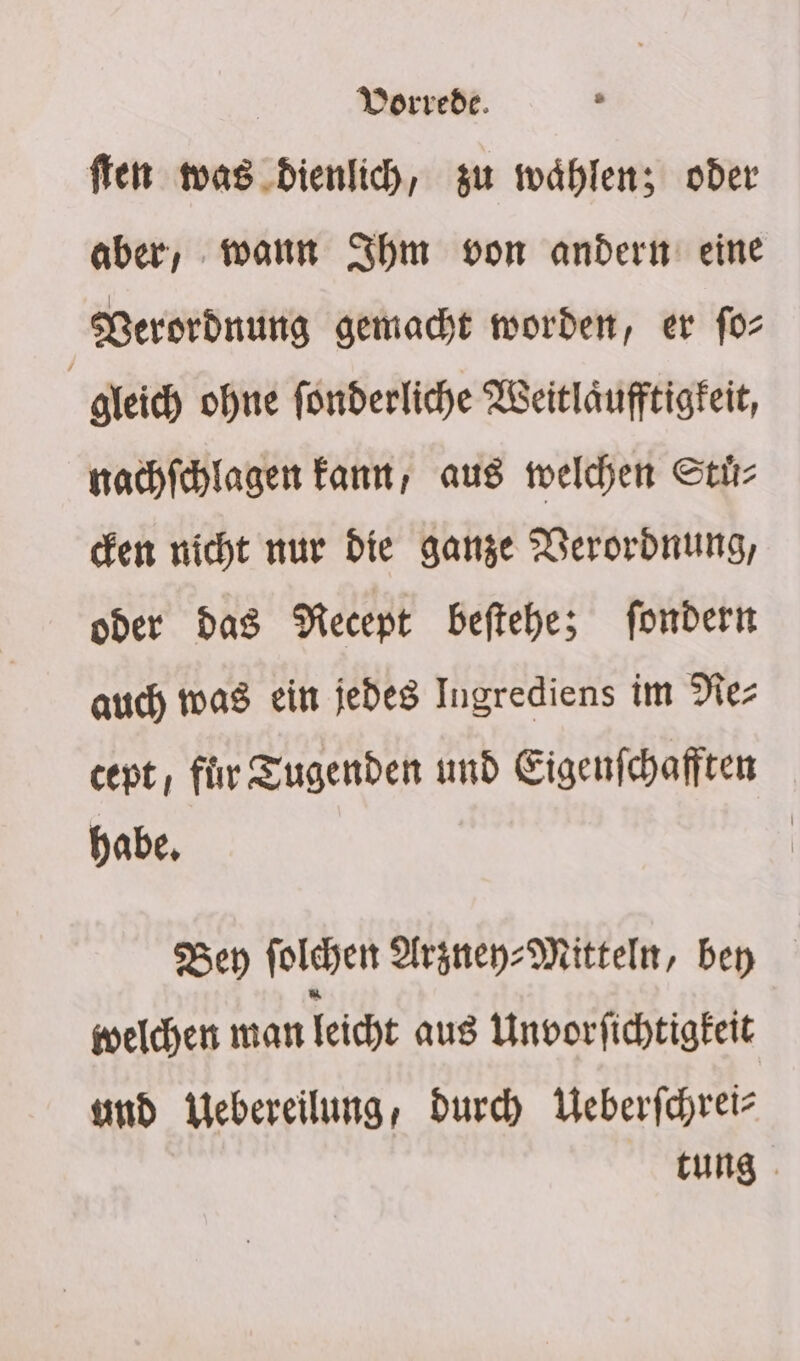 Vorrede.
ſten was dienlich, zu waͤhlen; oder
aber, wann Ihm von andern eine
Verordnung gemacht worden, er ſo⸗
gleich ohne ſonderliche Weitlaͤufftigkeit,
nachſchlagen kann, aus welchen Stuͤ⸗
cken nicht nur die ganze Verordnung,
oder das Recept beſtehe; ſondern
auch was ein jedes Ingrediens im Re⸗
cept, fuͤr Tugenden und Eigenſchafften
habe.
Bey ſolchen Arzney⸗Mitteln, bey
welchen man leicht aus Unvorſichtigkeit
und Uebereilung, durch Ueberſchrei⸗
tung